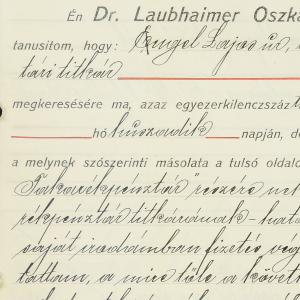 Én Dr. Laubhaimer Oszká
tanusitom, hogy: Engel Lajos úr,
tári titkár
megkeresésére ma, azaz egyezerkilenczszáz
hó huszadik napján, d
a melynek szószerinti másolata a tulsó oldalo
Takarékpénztár" részére
rékpénztár titkárának - hat
saját irodámban fizetés vég
tattam, a mire tőle a követ